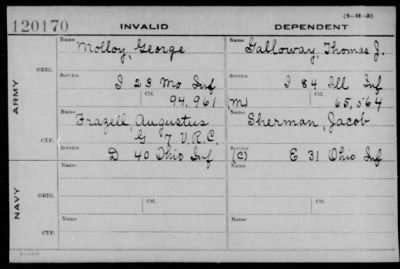 120170
INVALID
DEPENDENT
(3-M-3)
ARMY
ORIG.
Name
Molloy, George
Name
Galloway, Thomas J.
Service
I 23 Mo Inf
Service
I 84 Ill Inf
Ctf.
94,961
Ctf.
(M) 65,564
CTF.
Name
Frazell, Augustus
Name
Sherman, Jacob
G 7 V.R.C.
Service
D 40 Ohio Inf
Service
(C) E 31 Ohio Inf
NAVY
ORIG.
Name
Name
Service
Ctf.
Service
Ctf.
CTF.
Name
Name